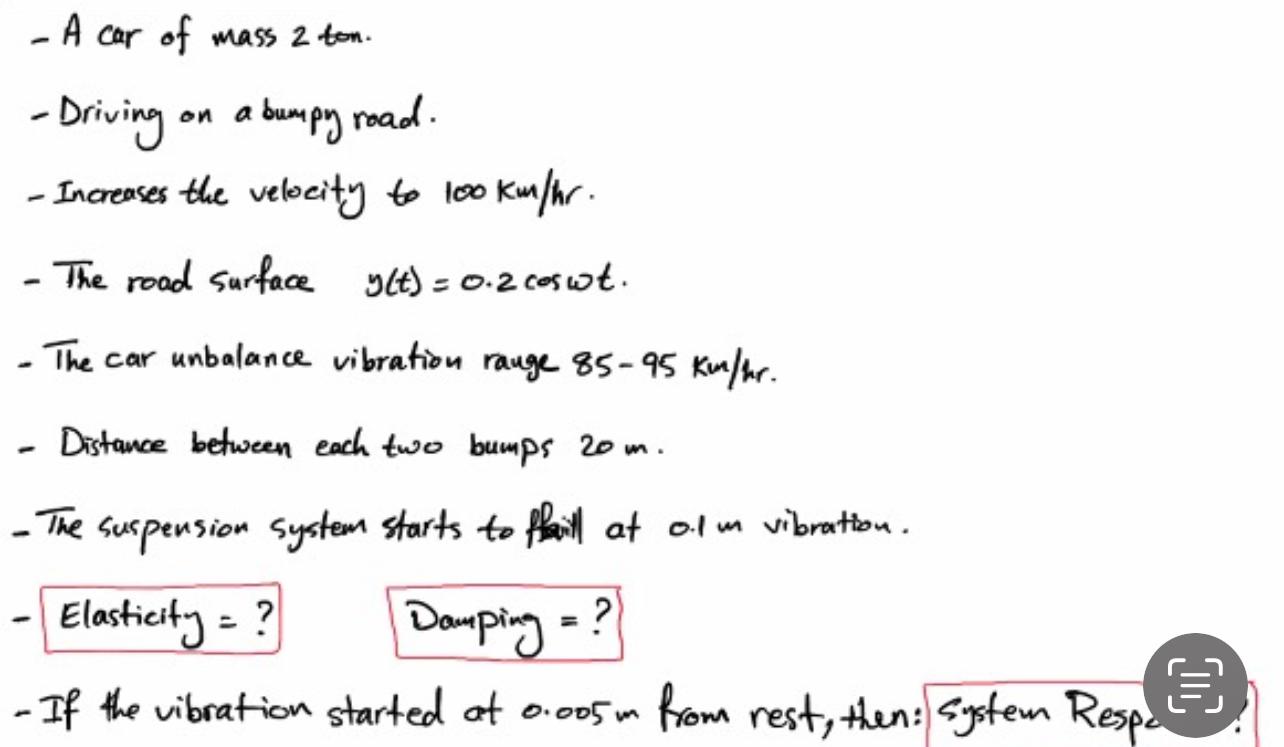 - A car of mass 2 ton.
- Driving on a bumpy road.
- Increases the velocity to 100 Km/hr.
- The road surface y(t) = 0.2 cos ωt.
- The car unbalance vibration range 85-95 Km/hr.
- Distance between each two bumps 20 m.
- The suspension system starts to fail at 0.1 m vibration.
- Elasticity = ? Damping = ?
- If the vibration started at 0.005 m from rest, then: System ?